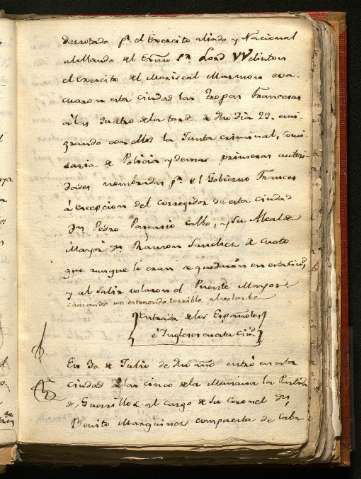 derrotada pr el Exercito aliado y Nacional
al mando del Señor Lord VVelinton
el Exercito del Mariscal Marmon eva-
cuaron esta ciudad las tropas Francesas
a las quatro de la tarde de dho dia 29. emi-
grando con ellos la Junta criminal, comi-
saria de Policia y demas primeras autori-
dades nombradas pr el Gobierno Frances
á excepcion del corregidor de esta ciudad
Dn Pedro Calbo, y su Alcalde
Mayor Dn Ramon Sanchez de Cueto
que aunque lo eran se quedaron en
y al salir volaron el Puente Mayor
causando un estruendo terrible, al
Entrada de los Españoles
é Ingleses en esta Ciud.
En 30 de Julio de dho año entró en esta
ciudad á las cinco de la mañana la Partida
de Guerrilla al cargo de su Coronel Dn
Benito Marquinez compuesta de